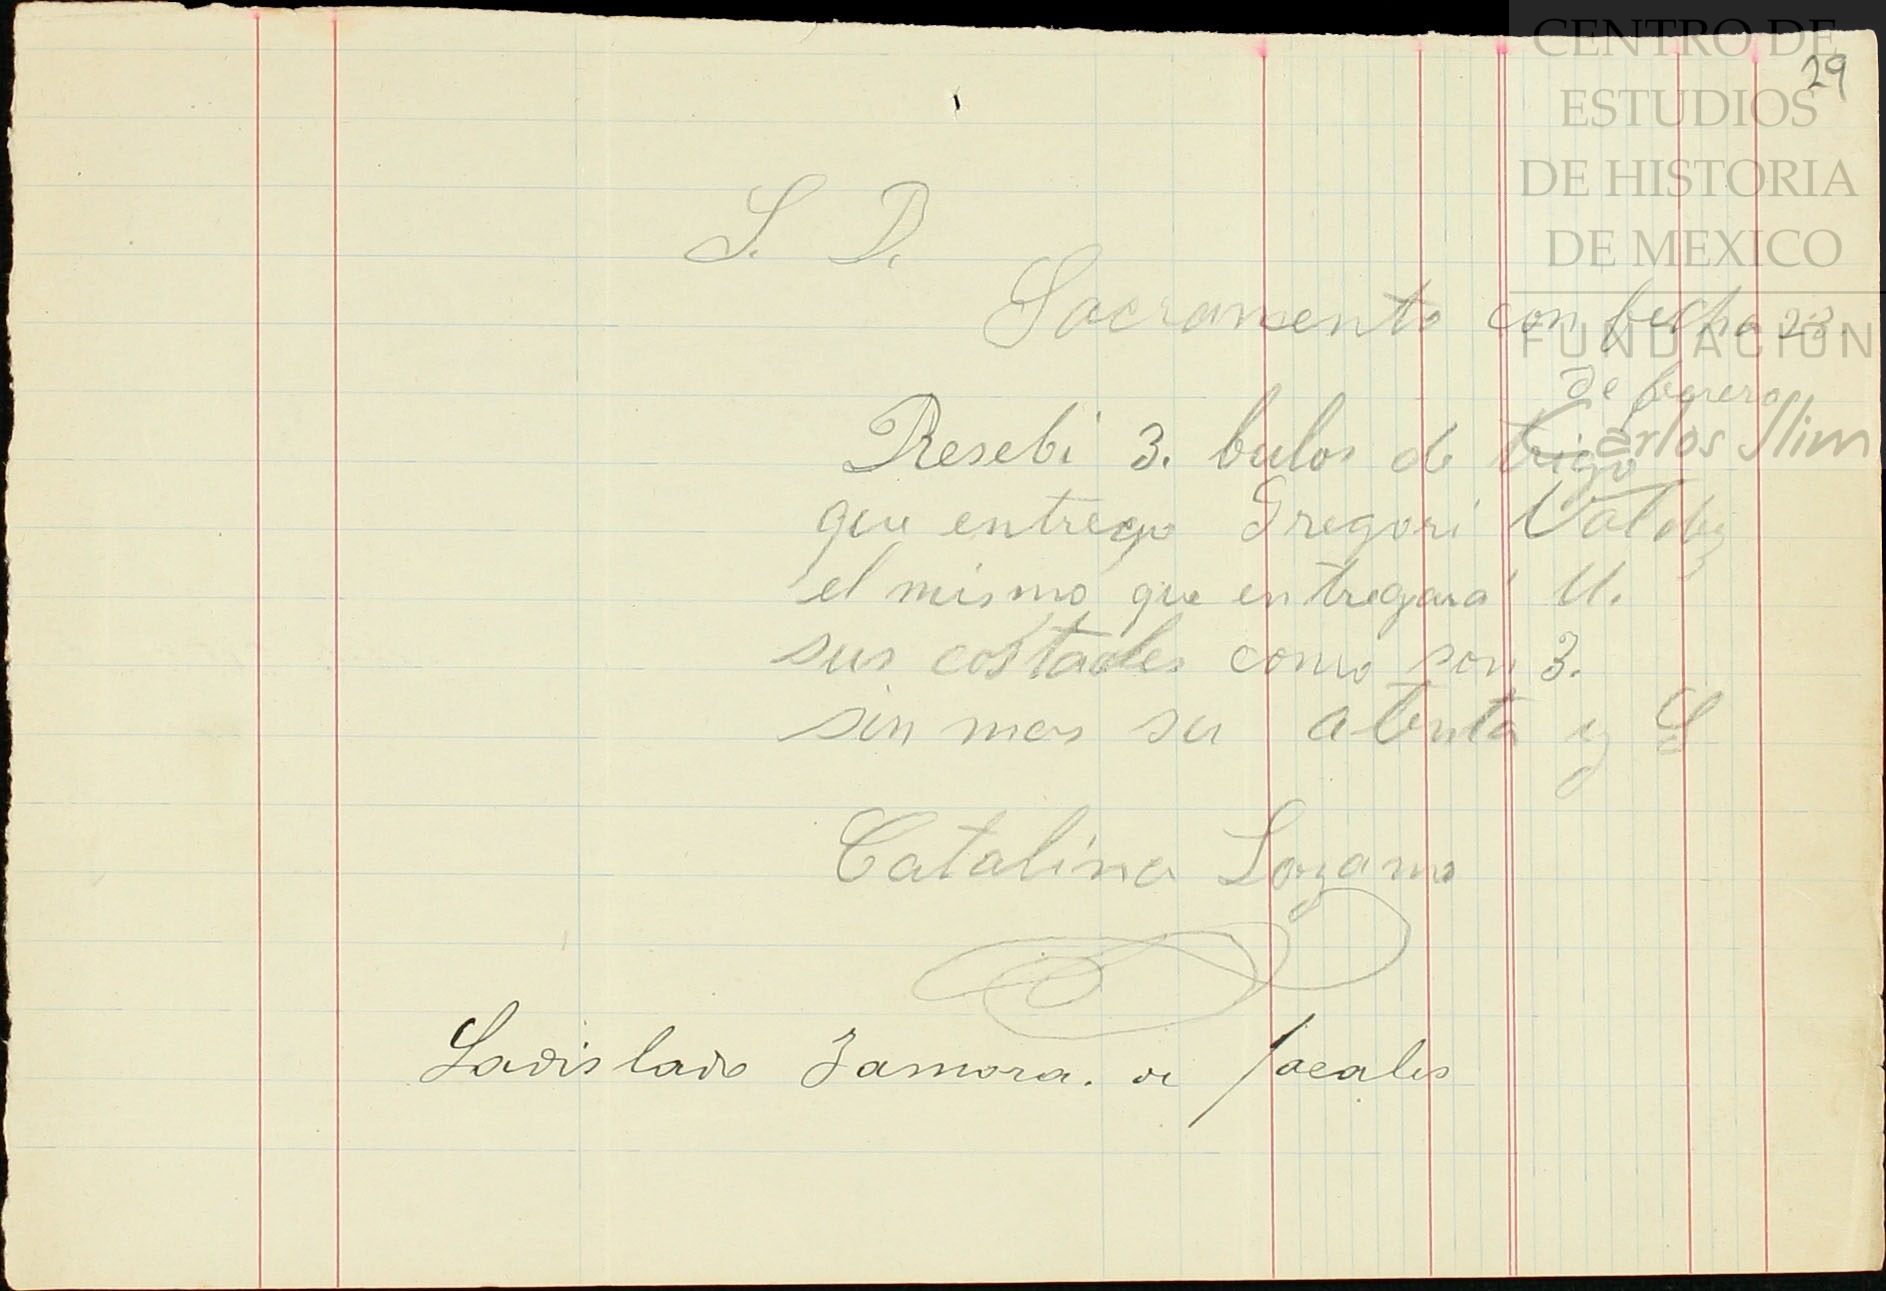 CENTRO DE
ESTUDIOS
DE HISTORIA
DE MEXICO
FUNDACIÓN
Carlos Slim
29
S. D.
Sacramento con fecha 23.
de febrero
Resebi 3. bulos de trigo
que entrego Gregori Valdez
el mismo que entregara U.
sus costales como son 3.
sin mas su atenta y S
Catalina Lozano
Ladislado Zamora. de